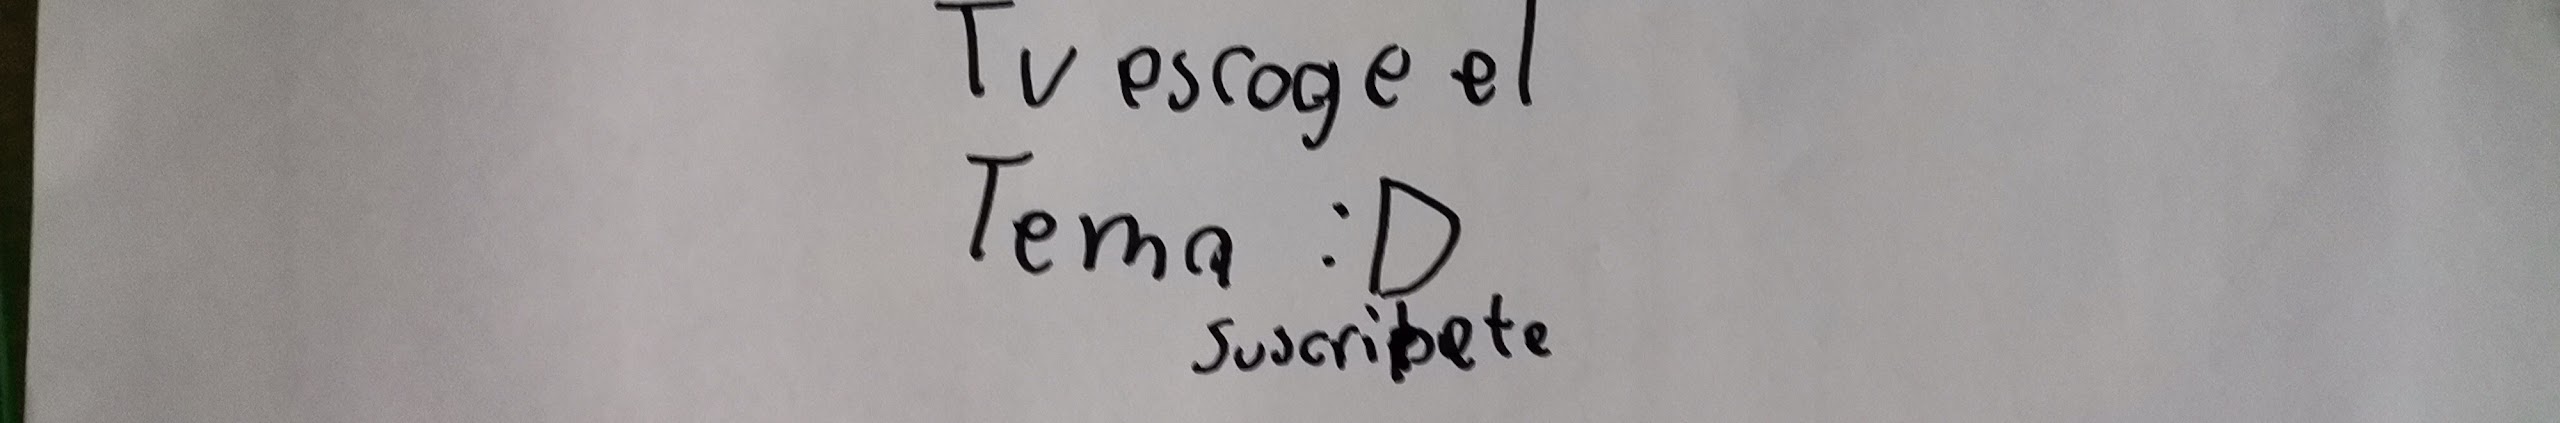 Tu escoge el
Tema :D
suscribete